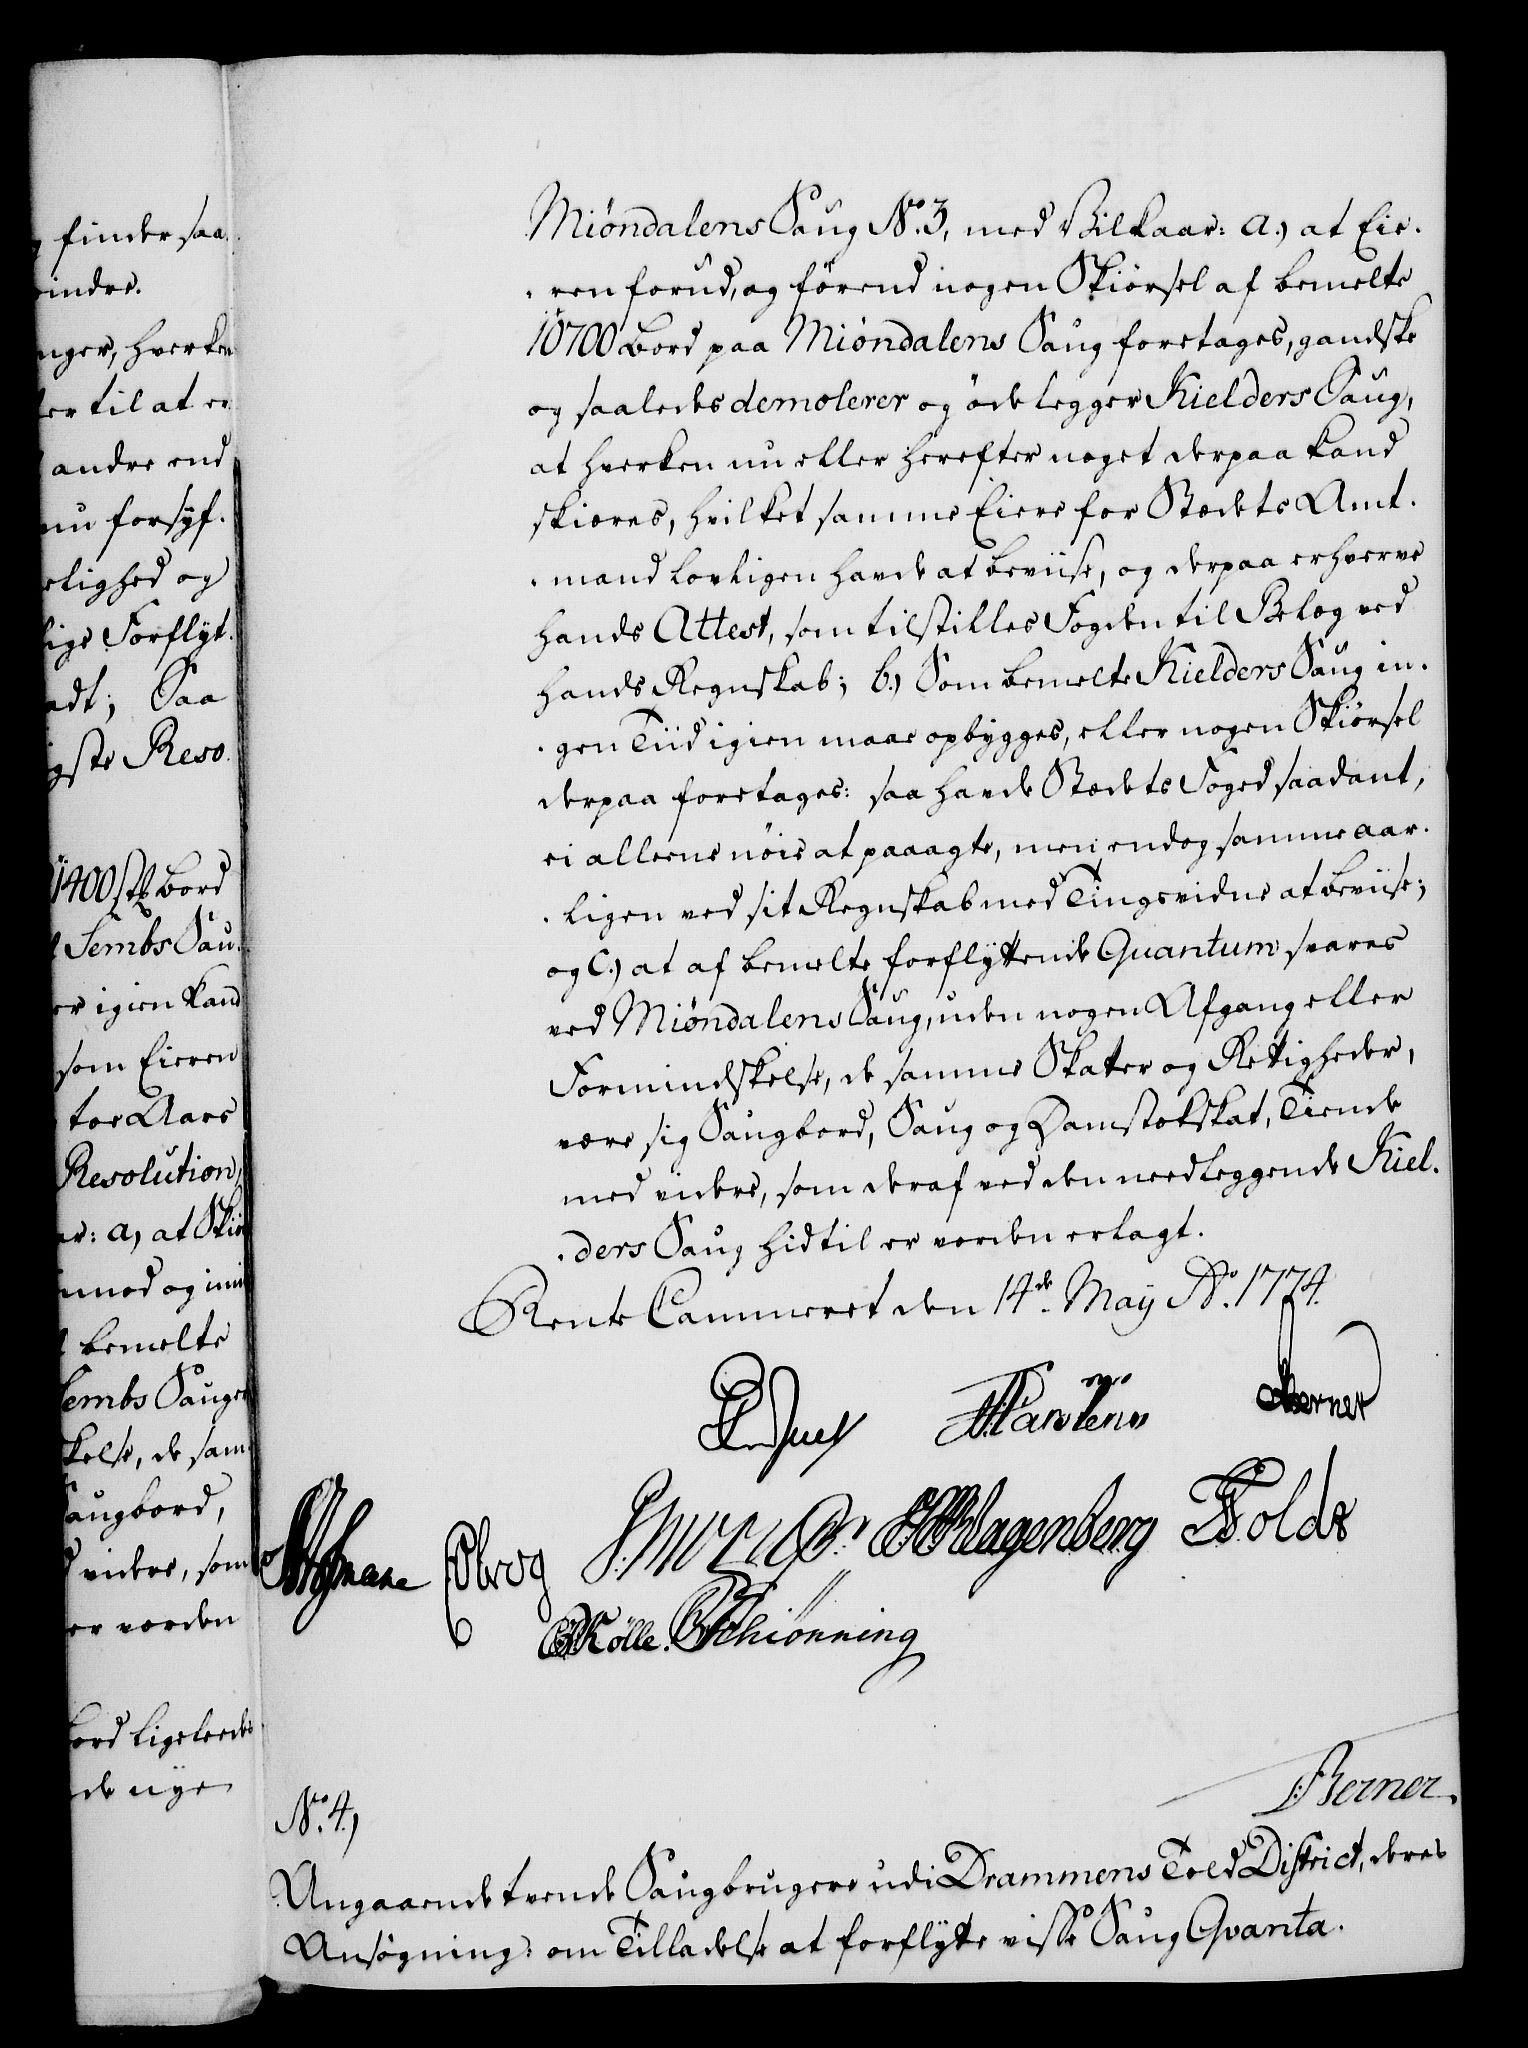 finder saa
indre.
nger, hverken
er til at er
andre end
nu forsyf-
elighed og
lige Forflyt-
adt; Saa
gste Reso-
1400 stk bord
Sembs Sau-
er igien kand
som Eieren
toe Aars
Resolution,
ar: a, at Skiø
nmed og in
bemelte
Sembs Sauger
kelse, de sam-
Saugbord,
videre, som
er vorden
bord ligeleedes
de nye
Miøndalens Saug No. 3, med Vilkaar: a.) at Eie-
-ren forud, og førend nogen Skiørsel af bemelte
10700 Bord paa Miøndalens Saug foretages, gandske
og saaledes demolerer og ødelegger Kielders Saug,
at hverken nu eller herefter noget derpaa kand
skiæres, hvilket samme Eiere for Stædets Amt-
-mand lovligen havde at beviise, og derpaa erhverve
hands Attest, som tilstilles Fogden til Belæg ved
hands Regnskab; b.) Som bemelte Kielders Saug in-
-gen Tiid igien maae opbygges, eller nogen Skiørsel
derpaa foretages: saa havde Stædets Foged saadant,
ei alleene nøie at paaagte, men endog samme aar-
-ligen ved sit Regnskab med Tingsvidne at beviise;
og C.) at af bemelte forflyttende Quantum svares
ved Miøndalens Saug, uden nogen Afgang eller
Formindskelse, de samme Skatter og Rettigheder,
være sig Saugbord, Saug og Damstokskat, Tiende
med videre, som deraf ved den needleggende Kiel-
-ders Saug hidtil er vorden erlagt.
Rente Cammeret den 14de May Ao. 1774.
Juel JCarstens Berner
Hofmann Klagenberg Holdt
Kölle. Schionning
Berner.
No. 4,
Angaaende tvende Saugbrugere udi Drammens Told District, deres
Ansøgning: om Tilladelse at forflytte visse Saug Qvanta.